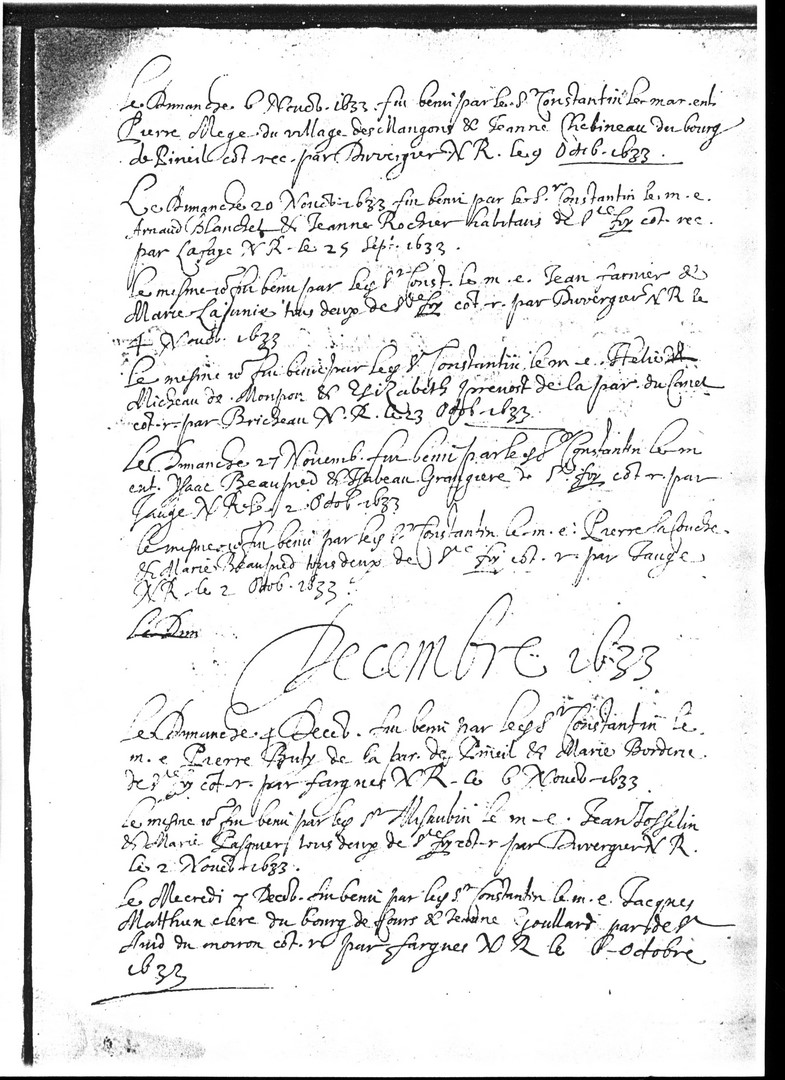 Le Dimanche 6 Novēb. 1633. fut beni par le Sr Constantin le mar. ent.
Pierre Mege du village des Mangons & Jeanne Chebineau du bourg
de Pineil cōt. rec. par Duvergier N. R. le 9 Octob. 1633.
Le Dimanche 20 Novēb. 1633 fut beni par le Sr Constantin le m. e.
Arnaud Blanchet & Jeanne Rochier habitans de Ste foy cōt. rec.
par Lafaye N. R. le 25 Sept. 1633.
Le mesme jor fut beni par led Sr Const. le m. e. Jean farnier &
Marie Lajunie tous deux de Ste foy cōt. r. par Duvergier N R le
4 Novēb. 1633
Le mesme jor fut beni par led Sr Constantin le m. e. Helie
Micheau de Monpon & Elizabeth prevost de la par. du Canet
cōt. r. par Bricheau N. R. le 23 Octob. 1633.
Le Dimanche 27 Novemb. fut beni par led Sr Constantin le m
ent. Ysaac Beaupied & Isabeau Grangiere de Ste foy cōt. r. par
Jauge N R le 2 Octob 1633
Le mesme jor fut beni par led Sr Constantin le m. e. Pierre lafouche
& Marie Beaupied tous deux de Ste foy cōt. r. par Jauge
N R le 2 Octob. 1633.
Le Dim
Decembre 1633
Le Dimanche 4 Decēb. fut beni par led Sr Constantin le
m. e Pierre de la par. de Pineil & Marie Borderie
de Ste foy cōt. r. par fargues N R. le 6 Novēb. 1633.
Le mesme jor fut beni par led Sr Misaubin le m. e. Jean Josselin
& Marie Pasquier tous deux de Ste foy cōt. r par Duvergier N R.
le 2 Novēb. 1633.
Le Mecredi 7 Decēb. fut beni par led Sr Constantin le m. e. Jacques
Matthieu clerc du bourg de & Jeanne Goullard par. de St
Avid du moiron cōt. r par fargues N R le Octobre
1633